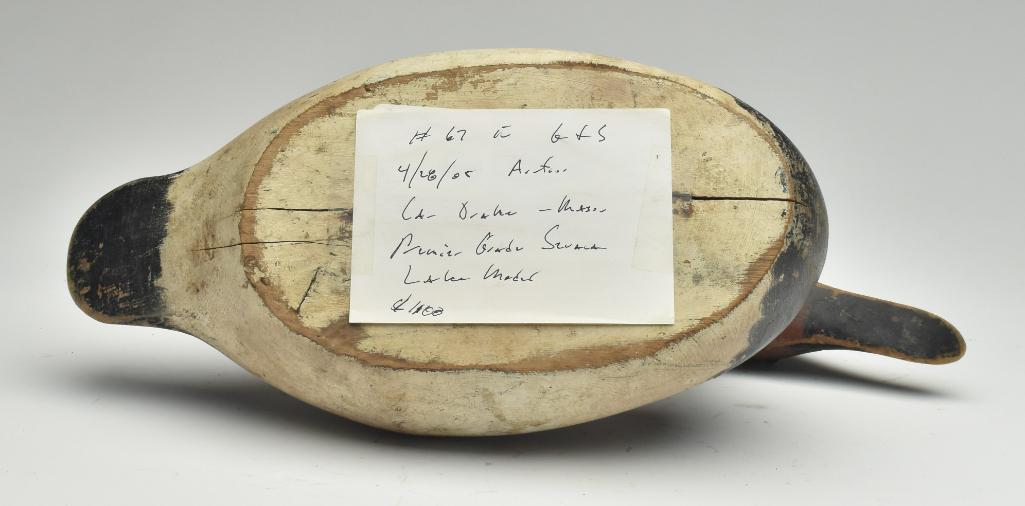 # 67 in G & S
4/28/05 Auction
Can Drake - Mason
Premier Grade Seneca
Lake Model
$1100